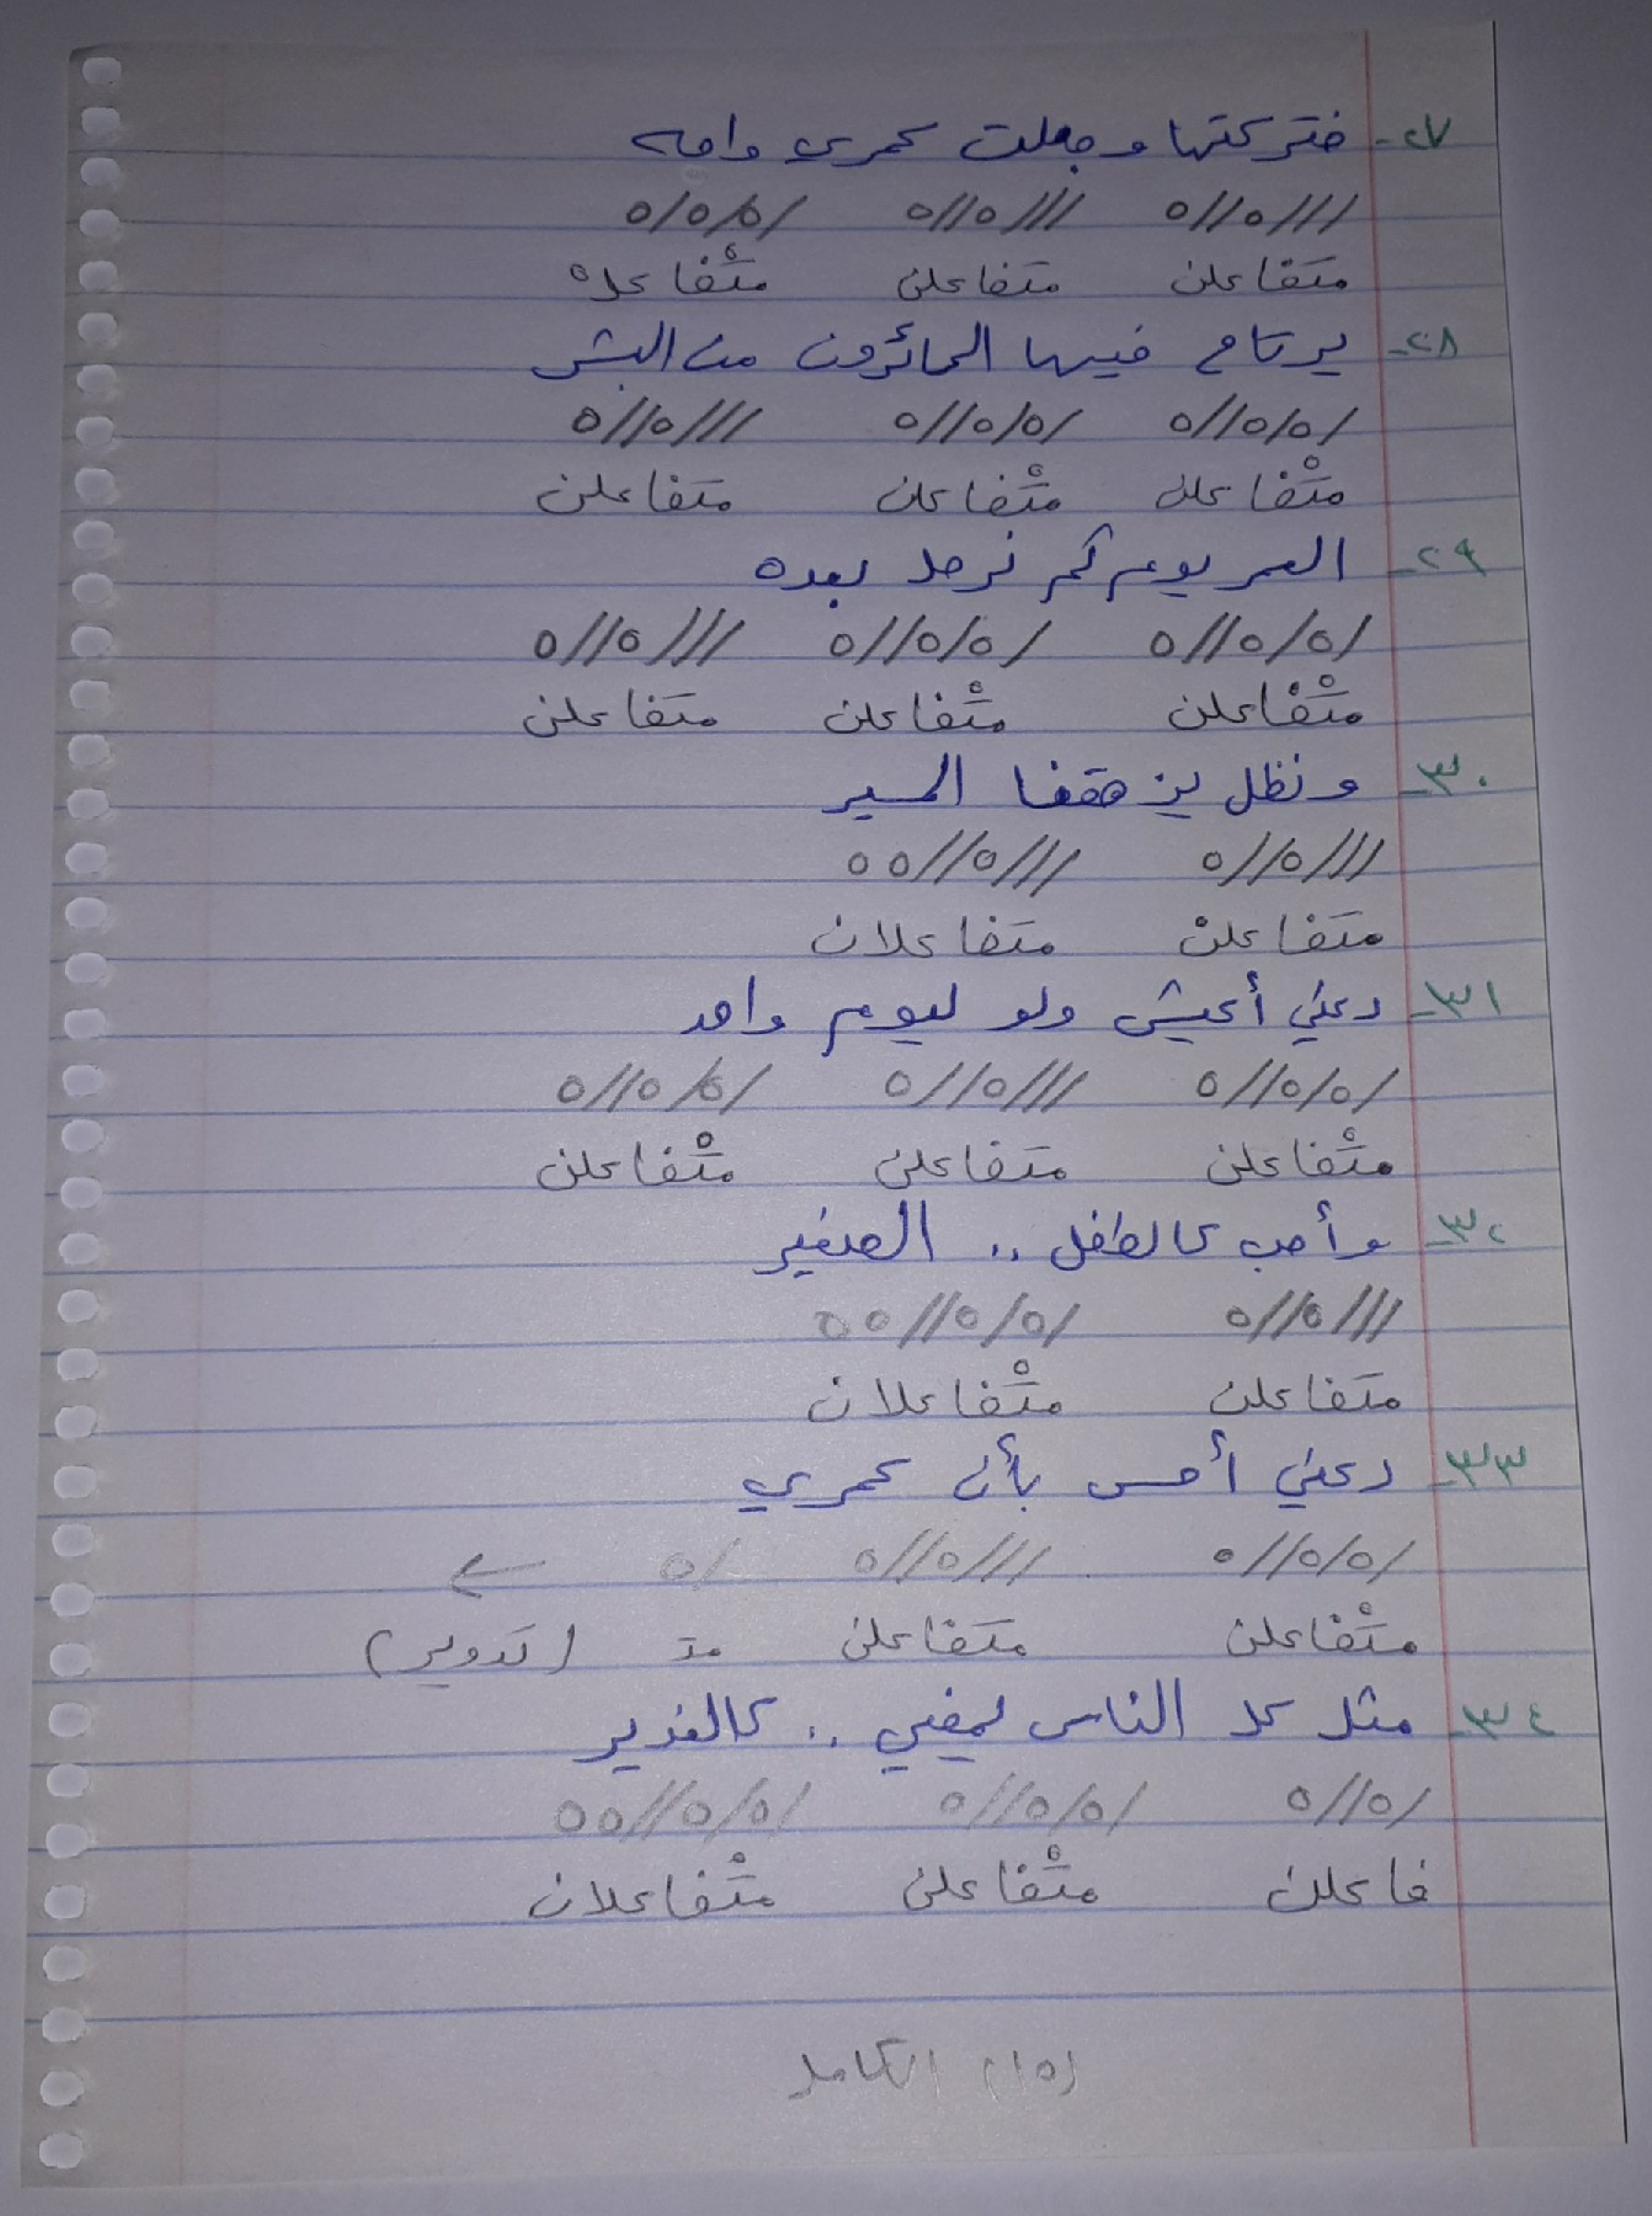 ٢٧- فتركتها وجعلت عمري واحه
///٥//٥ ///٥//٥ /٥/٥/٥
متَفاعلن متَفاعلن متْفاعلْ
٢٨- يرتاح فيها الحائرون من البشر
/٥/٥//٥ /٥/٥//٥ ///٥//٥
متْفاعلن متْفاعلن متَفاعلن
٢٩- العمر يوم ثم نرحل بعده
/٥/٥//٥ /٥/٥//٥ ///٥//٥
متْفاعلن متْفاعلن متَفاعلن
٣٠- ونظل يزهقنا المسير
///٥//٥ ///٥//٥٥
متَفاعلن متَفاعلان
٣١- دعني أعيش ولو ليوم واحد
/٥/٥//٥ ///٥//٥ /٥/٥//٥
متْفاعلن متَفاعلن متْفاعلن
٣٢- وأحب كالطفل .. الصغير
///٥//٥ /٥/٥//٥٥
متَفاعلن متْفاعلان
٣٣- دعني أحس بأن عمري
/٥/٥//٥ ///٥//٥ /٥ ←
متْفاعلن متَفاعلن متـ (تدوير)
٣٤- مثل كل الناس يمضي .. كالغدير
/٥//٥ /٥/٥//٥ /٥/٥//٥٥
فاعلن متْفاعلن متْفاعلان
(١٥) الكامل